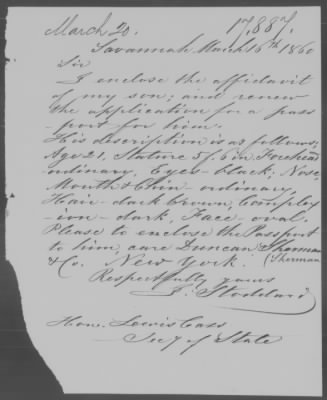 March 20. 17,887.
Savannah March 16th 1860
Sir
I enclose the affidavit
of my son; and renew
the application for a pass
-port for him.
His description is as follows;
Age 21, Stature 5f. 6 in Forehead
ordinary, Eyes-black; Nose,
Mouth & Chin - ordinary,
Hair - dark brown, Complex
-ion - dark, Face - oval.
Please to enclose the Passport
to him, care Duncan Sherman
& Co. New York. (Sherman
Respectfully yours
J. Stoddard
Hon. Lewis Cass
Sec'y of State